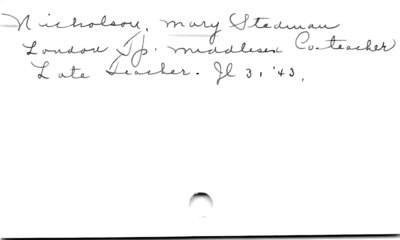 Nicholson, Mary Stedman
London Tp. Middlesex Co-teacher
Late teacher. Jl 3, '43.